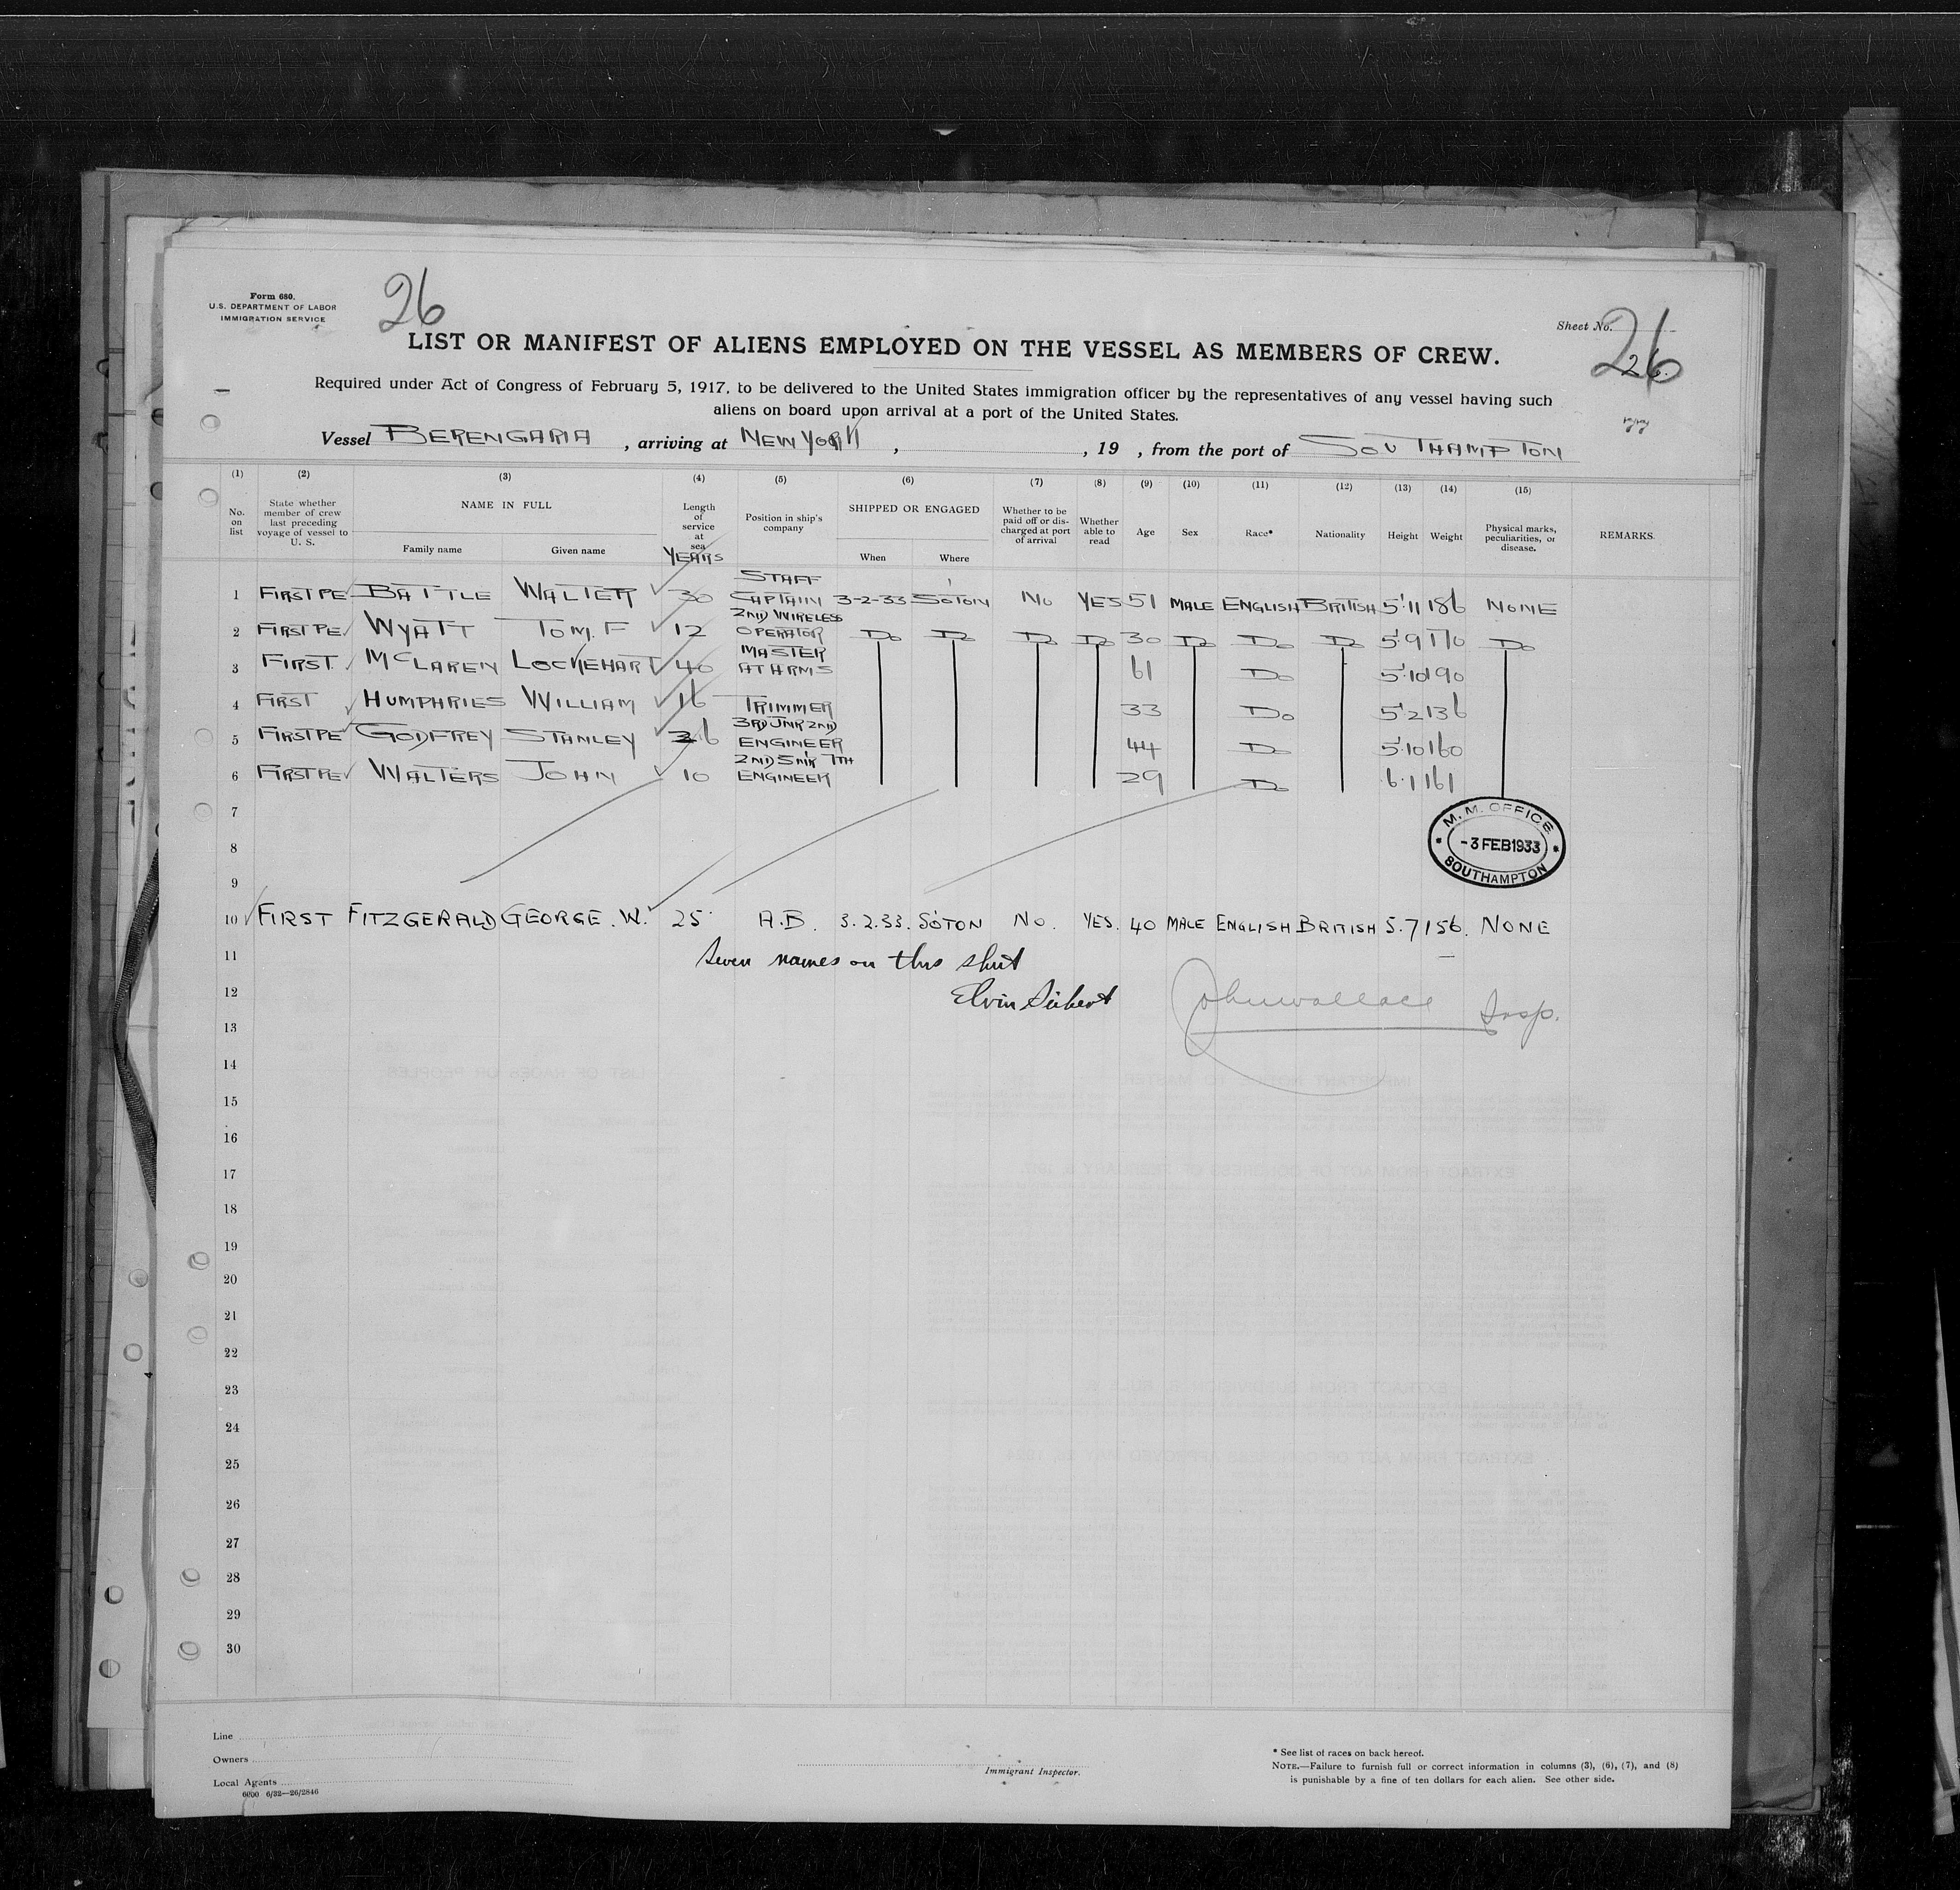 Form 680.
U.S. DEPARTMENT OF LABOR
IMMIGRATION SERVICE
26
Sheet No. 26
26.
LIST OR MANIFEST OF ALIENS EMPLOYED ON THE VESSEL AS MEMBERS OF CREW.
Required under Act of Congress of February 5, 1917, to be delivered to the United States immigration officer by the representatives of any vessel having such
aliens on board upon arrival at a port of the United States.
Vessel BERENGARIA , arriving at NEW YORK , , 19 , from the port of SOUTHAMPTON
(1) (2) (3) (4) (5) (6) (7) (8) (9) (10) (11) (12) (13) (14) (15)
No. on list
State whether member of crew last preceding voyage of vessel to U. S.
NAME IN FULL
Family name
Given name
Length of service at sea
YEARS
Position in ship's company
SHIPPED OR ENGAGED
When
Where
Whether to be paid off or discharged at port of arrival
Whether able to read
Age
Sex
Race*
Nationality
Height
Weight
Physical marks, peculiarities, or disease.
REMARKS.
1 FIRST PE BATTLE WALTER 30 STAFF CAPTAIN 3-2-33 SOTON NO YES 51 MALE ENGLISH BRITISH 5'11 186 NONE
2 FIRST PE WYATT TOM. F 12 2ND WIRELESS OPERATOR Do Do Do Do 30 Do Do Do 5'9 170 Do
3 FIRST McLAREN LOCKEHART 40 MASTER AT ARMS 61 Do 5'10 190
4 FIRST HUMPHRIES WILLIAM 16 TRIMMER 33 Do 5'2 136
5 FIRST PE GODFREY STANLEY 26 3RD JNR 2ND ENGINEER 44 Do 5'10 160
6 FIRST PE WALTERS JOHN 10 2ND SNR 7TH ENGINEER 29 Do 6'1 161
7
M. M. OFFICE
-3 FEB 1933
SOUTHAMPTON
8
9
10 FIRST FITZGERALD GEORGE. W. 25 A.B. 3.2.33. SOTON NO. YES. 40 MALE ENGLISH BRITISH 5.7 156. NONE
11 Seven names on this sheet
12 Elvin Seibert John Wallace Insp.
13
14
15
16
17
18
19
20
21
22
23
24
25
26
27
28
29
30
Line
Owners
Local Agents
6600 6/32—26/2846
Immigrant Inspector.
* See list of races on back hereof.
NOTE.—Failure to furnish full or correct information in columns (3), (6), (7), and (8)
is punishable by a fine of ten dollars for each alien. See other side.